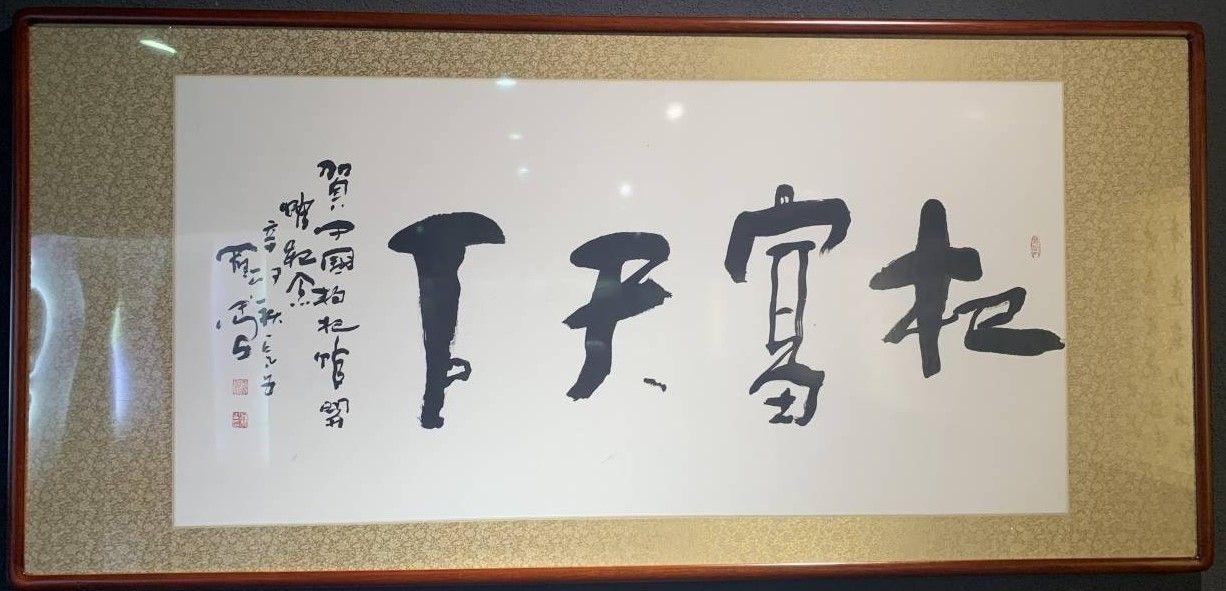 杞富天下
賀中國枸杞館開
館紀念
辛丑秋